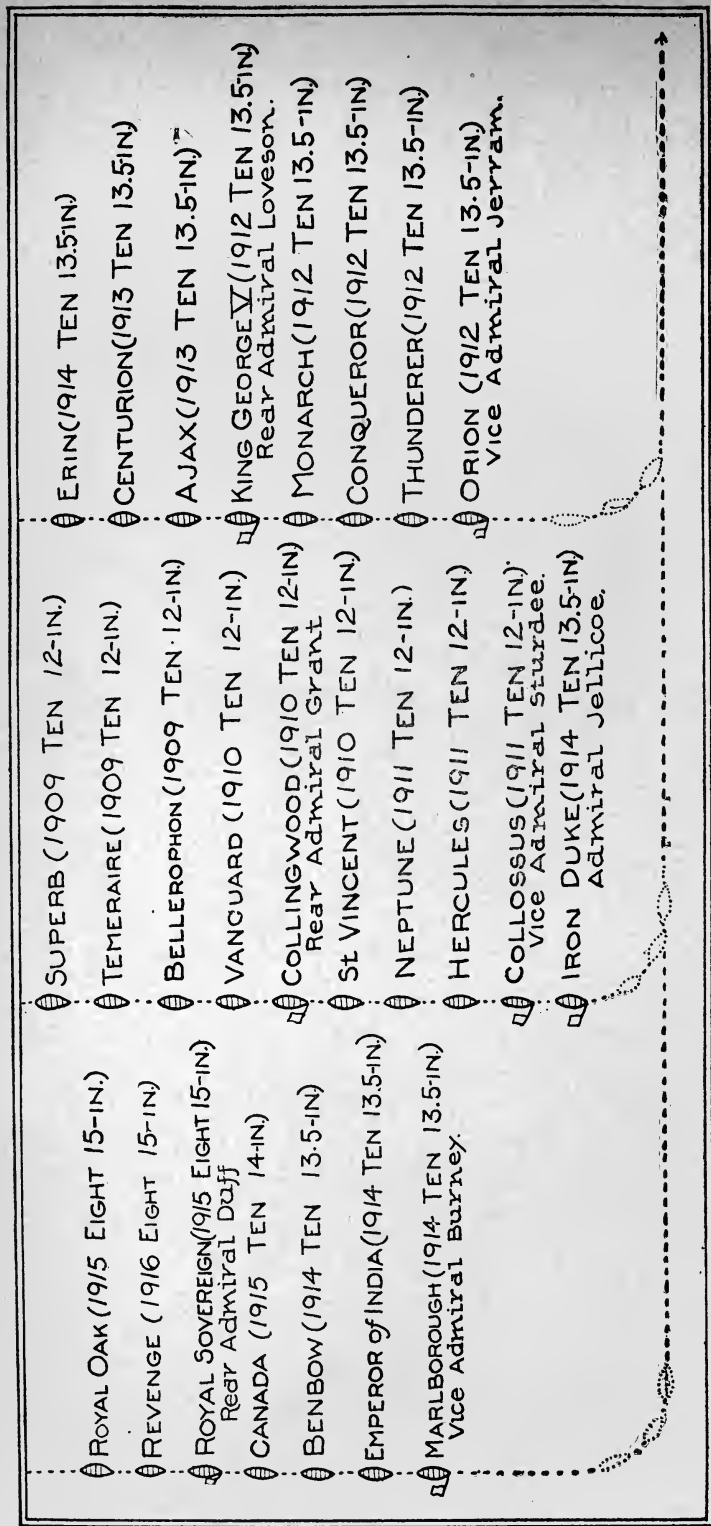 ROYAL OAK (1915 EIGHT 15-IN.)
REVENGE (1916 EIGHT 15-IN.)
ROYAL SOVEREIGN (1915 EIGHT 15-IN.)
Rear Admiral Duff
CANADA (1915 TEN 14-IN.)
BENBOW (1914 TEN 13.5-IN.)
EMPEROR of INDIA (1914 TEN 13.5-IN.)
MARLBOROUGH (1914 TEN 13.5-IN.)
Vice Admiral Burney.
SUPERB (1909 TEN 12-IN.)
TEMERAIRE (1909 TEN 12-IN.)
BELLEROPHON (1909 TEN 12-IN.)
VANGUARD (1910 TEN 12-IN.)
COLLINGWOOD (1910 TEN 12-IN)
Rear Admiral Grant
St VINCENT (1910 TEN 12-IN.)
NEPTUNE (1911 TEN 12-IN.)
HERCULES (1911 TEN 12-IN.)
COLLOSSUS (1911 TEN 12-IN.)
Vice Admiral Sturdee.
IRON DUKE (1914 TEN 13.5-IN.)
Admiral Jellicoe.
ERIN (1914 TEN 13.5IN.)
CENTURION (1913 TEN 13.5IN)
AJAX (1913 TEN 13.5-IN.)
KING GEORGE V (1912 TEN 13.5-IN.)
Rear Admiral Loveson.
MONARCH (1912 TEN 13.5-IN.)
CONQUEROR (1912 TEN 13.5-IN.)
THUNDERER (1912 TEN 13.5-IN.)
ORION (1912 TEN 13.5-IN.)
Vice Admiral Jerram.